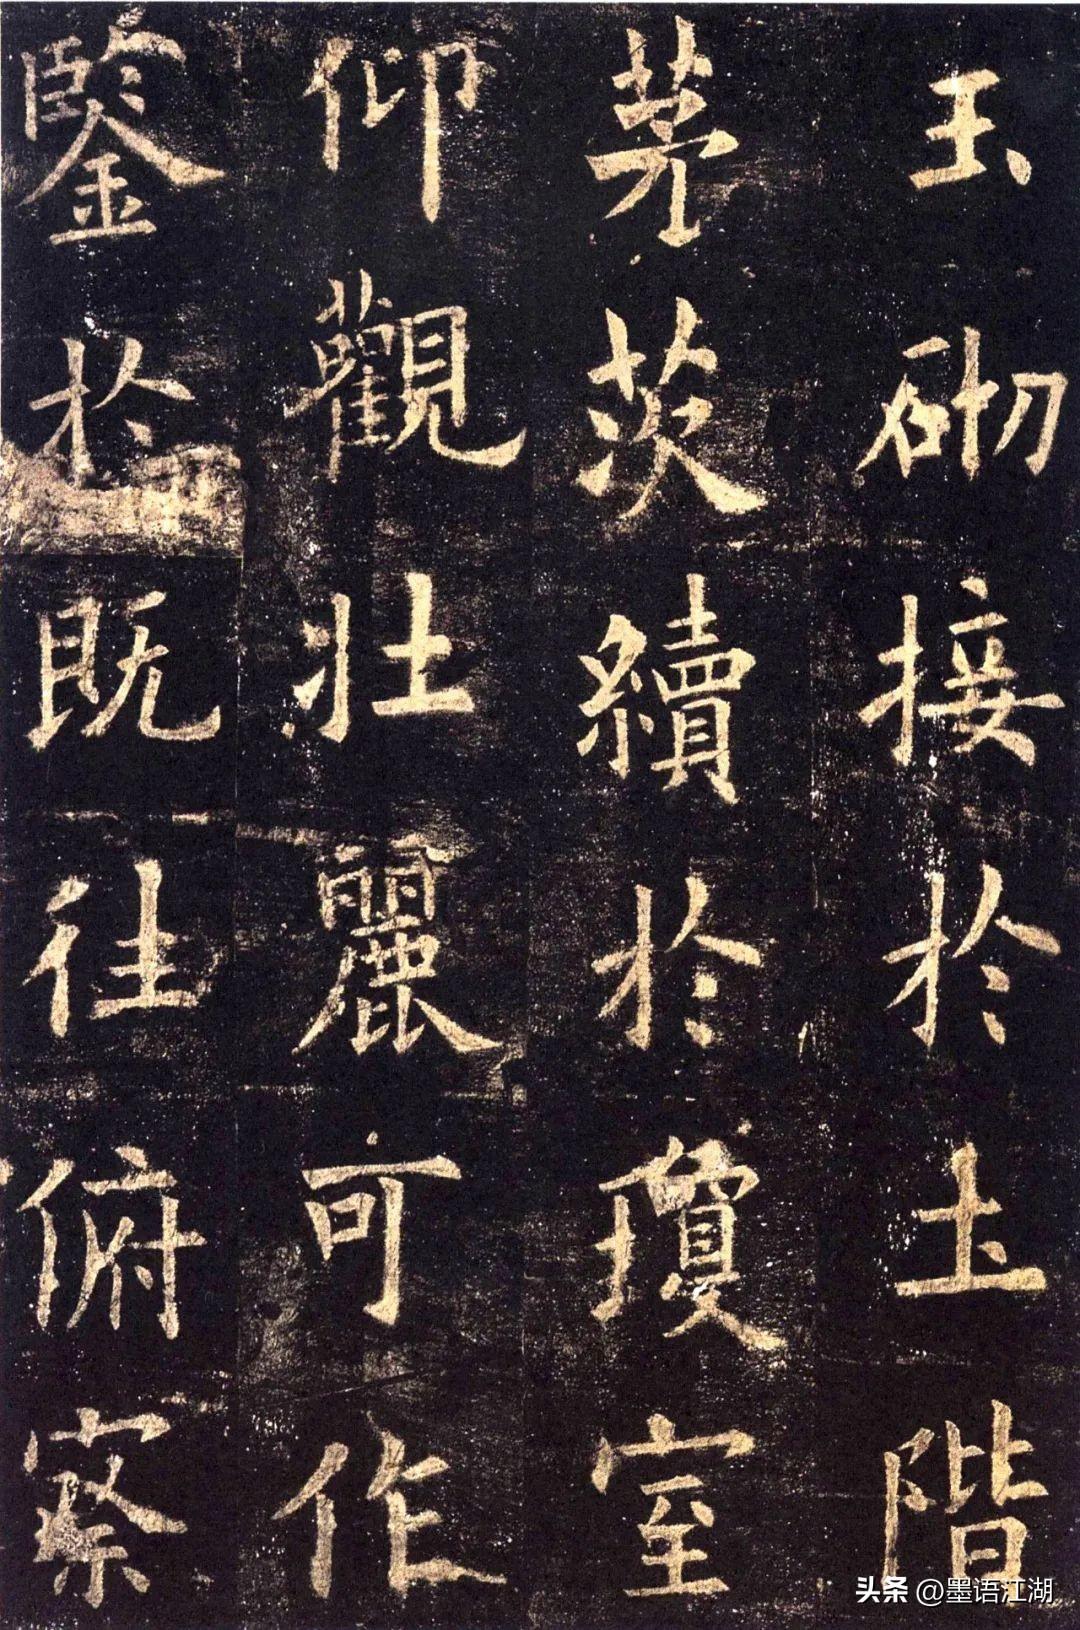 玉砌接於土階
茅茨續於瓊室
仰觀壯麗可作
鑒於既往俯察
头条 @墨语江湖